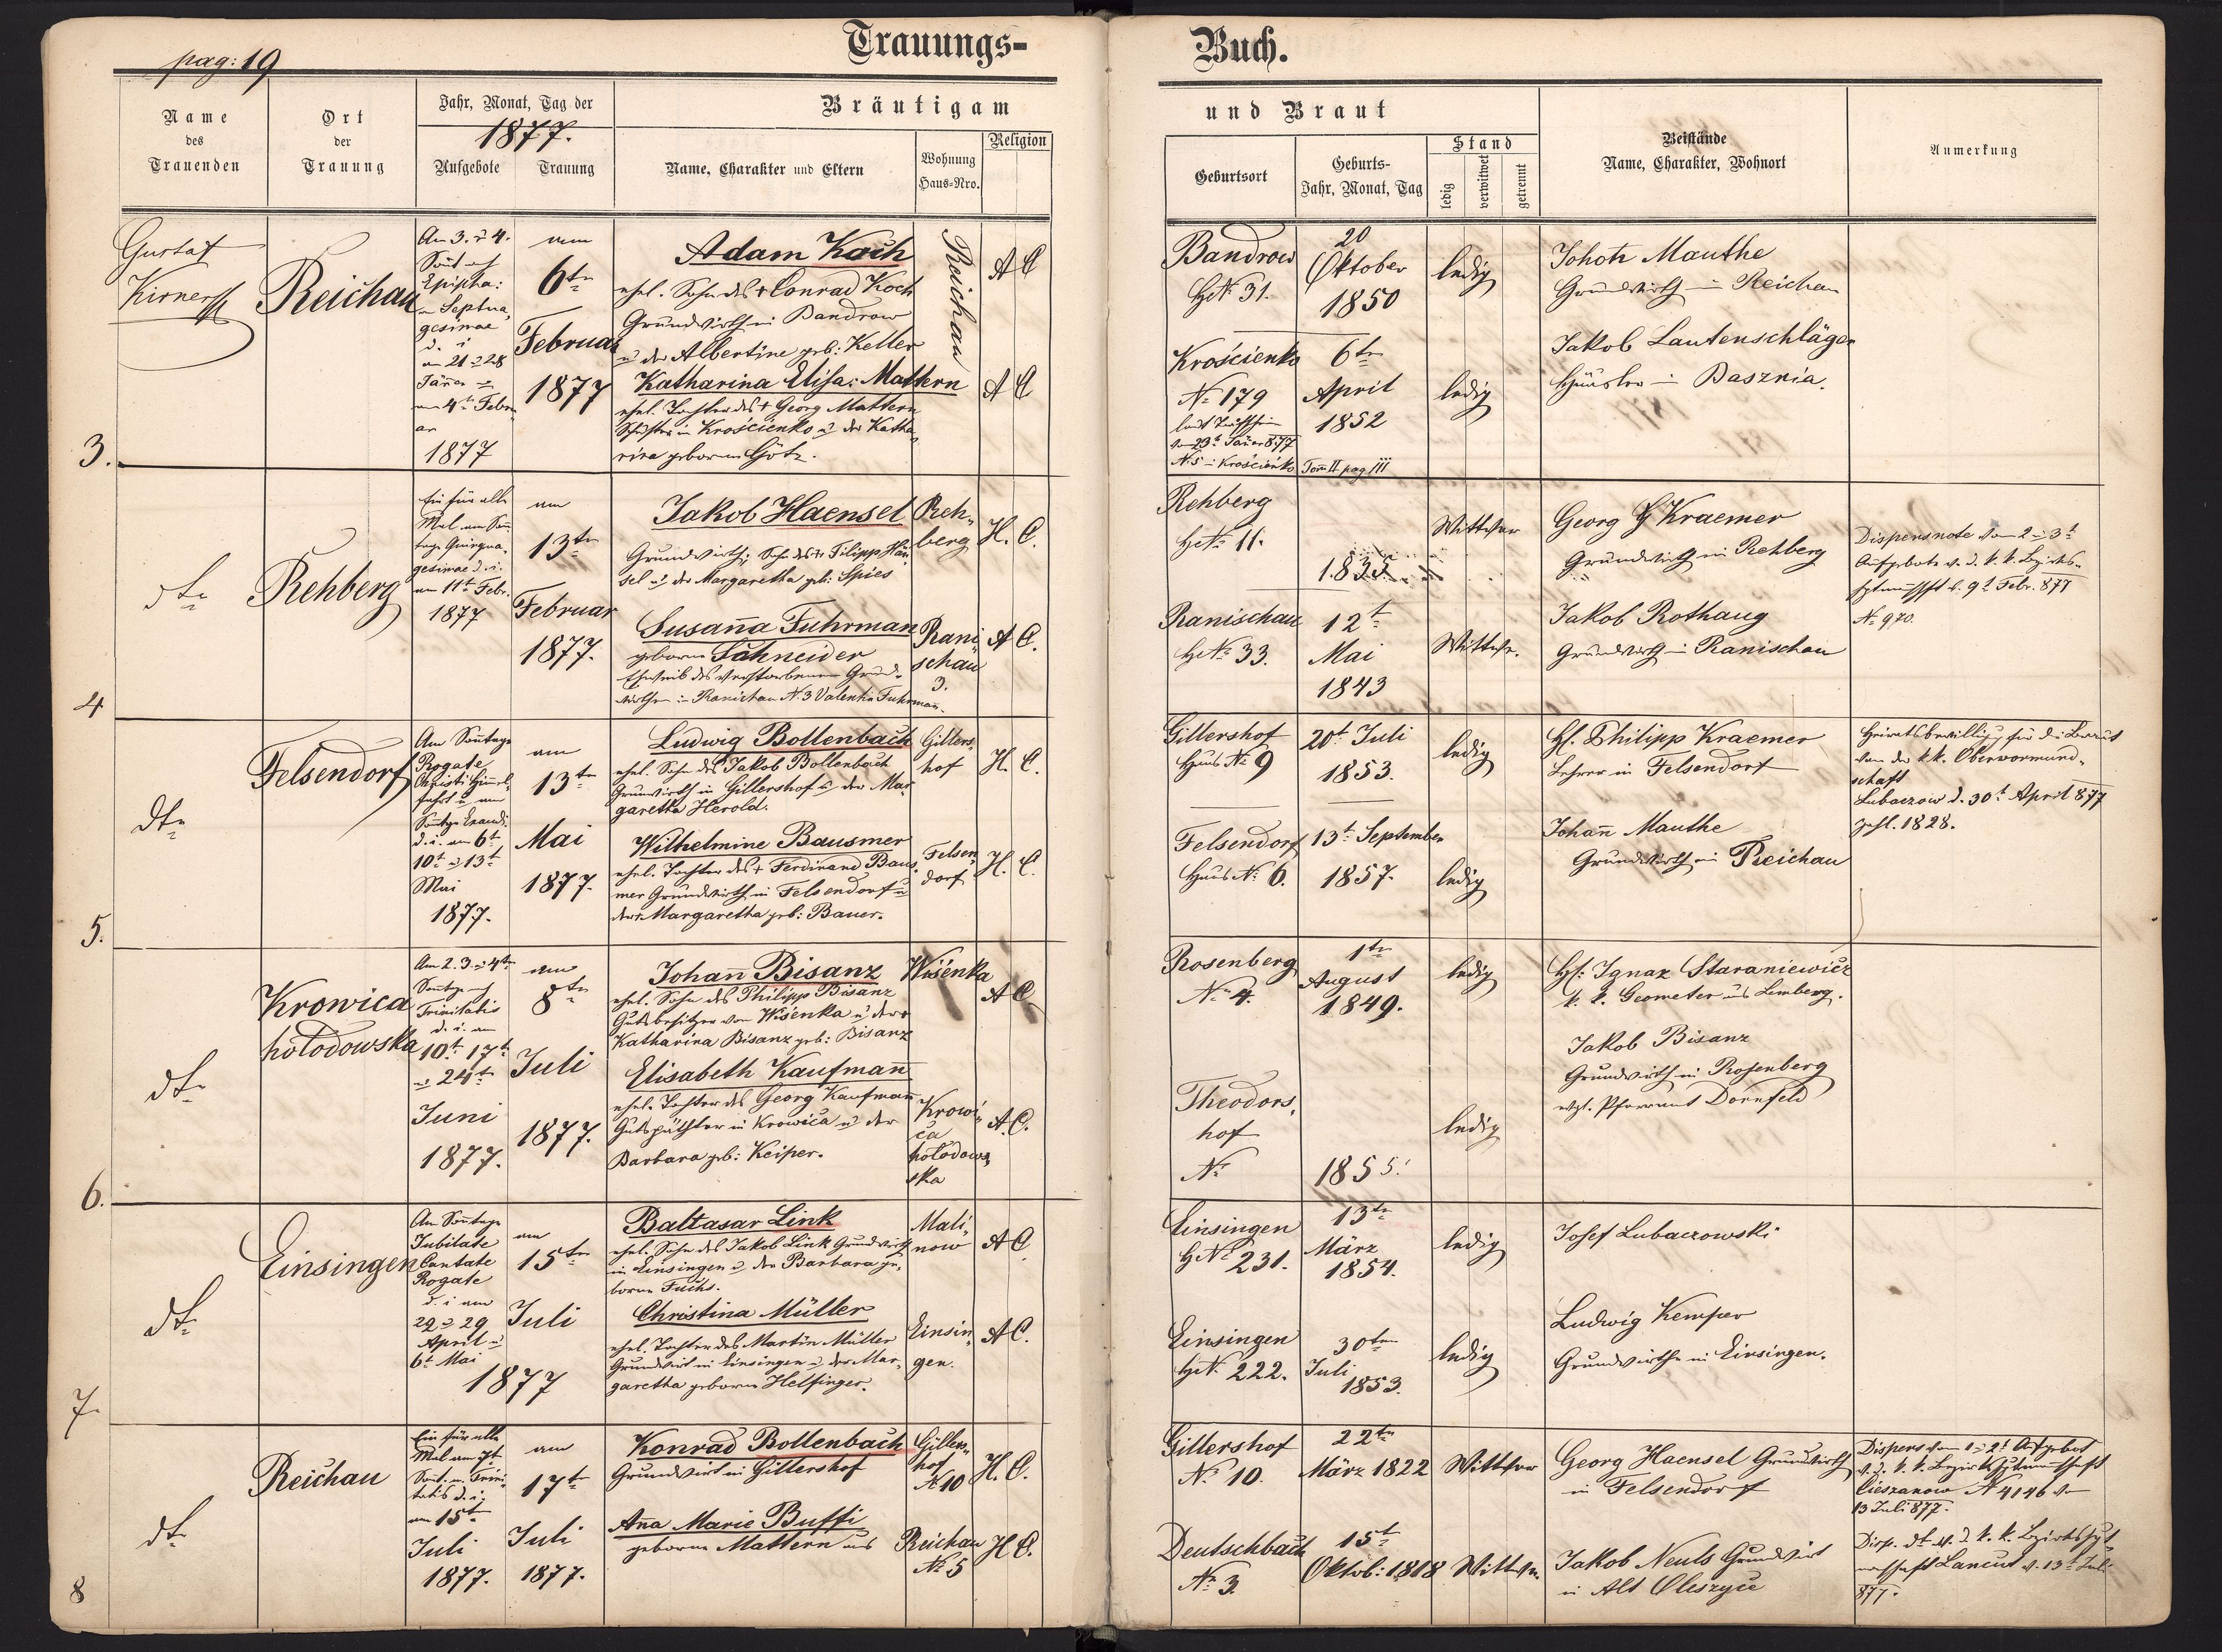 pag: 19
Trauungs-
Buch.
Name
des
Trauenden
Ort
der
Trauung
Jahr, Monat, Tag der
1877.
Aufgebote
Trauung
Bräutigam
Name, Charakter und Eltern
Wohnung
Haus-Nro.
Religion
und Braut
Geburtsort
Geburts-
Jahr, Monat, Tag
Stand
ledig
verwitwet
getrennt
Beistände
Name, Charakter, Wohnort
Anmerkung
3.
Gustaf
Kirner
Reichau
Am 3. & 4.
Epipha:
Septua,
gesimae
d. i
am 21 & 28
Jäner
am 4t Febru
ar
1877
am
6tn
Februar
1877
Adam Koch
ehel. Sohn des + Conrad Koch
Grundwirth in Bandrow
u der Albertine geb: Keller
Katharina Elisa: Mattern
ehel. Tochter des + Georg Mattern
Schuster in Krościenko u der Katha,
rina geborne Götz.
Reichau
A C
A C
Bandrow
HN. 31.
20
Oktober
1850
ledig
Krościenko
No 179
laut Taufschein
vom 23t Jäner 877
N. 5 in Krościenko Tom II pag III
6tn
April
1852
ledig
Johan Mauthe
Grundwirth in Reichau
Jakob Lautenschläger
Häusler in Basznia.
4
dto
Rehberg
Ein für alle
Mal am Son
tage Quinqua,
gesimae d. i.
am 11t Febr.
1877
am
13tn
Februar
1877.
Jakob Haensel
Grundwirth, Sohn des + Filipp Hän
sel u der Margaretha geb: Spies
Susana Fuhrman
geborne Schneider
Eheweib des verstorbenen Grund,
wirthen in Ranischau N. 3 Valentin Fuhrman.
Reh,
berg
H. C.
Rani
schau
3.
A C.
Rehberg
HNo 11.
1835
Wittwer
Ranischau
HNo 33.
12t
Mai
1843
Wittwe.
Georg Kraemer
Grundwirth in Rehberg
Jakob Rothaug
Grundwirth in Ranischau
Dispensnote vom 2 u 3t
Aufgebote v. d. k. k. Bezirks-
d. 9t Febr. 877
No 970.
5.
dto
Felsendorf
Am Sontage
Rogate
Christi Himmel,
fahrt u am
Sontage Exaudi
d. i. am 6t
10t u 13t
Mai
1877.
am
13tn
Mai
1877.
Ludwig Bollenbach
ehel. Sohn des Jakob Bollenbach
Grundwirth in Gillershof u der Mar
garetha Herold.
Wilhelmine Bausmer
ehel. Tochter des + Ferdinand Baus,
mer Grundwirth in Felsendorf u
der Margaretha geb: Bauer.
Gillers,
hof
H. C.
Felsen,
dorf
H. C.
Gillershof
Haus No 9
20t Juli
1853.
ledig
Felsendorf
Haus No 6.
13t September
1857.
ledig
H. Philipp Kraemer
Lehrer in Felsendorf
Johan Mauthe
Grundwirth in Reichau
Heiratsbewilligung für die Braut
von der kk. Obervormund,
schaft
Lubaczow d. 30t April 877
Zahl. 1828.
6.
dto
Krowica
hołodowska
Am 2. 3. u 4tn
Sontage nach
Trinitatis
d. i. am
10t 17t
u 24t
Juni
1877.
am
8tn
Juli
1877.
Johan Bisanz
ehel. Sohn des Philipp Bisanz
Gutsbesitzer von Wiśenka u der
Katharina Bisanz geb: Bisanz
Elisabeth Kaufman
ehel. Tochter des Georg Kaufman
Gutspächter in Krowica u der
Barbara geb: Keiper.
Wiśenka
A C
Krowi,
ca
hołodows,
ska
A. C.
Rosenberg
No 4.
1tn
August
1849.
ledig
Theodors,
hof
No
1855.
ledig
H. Ignaz Staraniewicz
k. k. Geometer aus Lemberg.
Jakob Bisanz
Grundwirth in Rosenberg
Pfarramt Dornfeld
7.
dto
Einsingen
Am Sontage
Jubilate
Cantate
Rogate
d. i am
22 u 29
April u
6t Mai
am
15tn
Juli
1877
Baltasar Link
ehel. Sohn des Jakob Link Grundwirth
in Einsingen u der Barbara ge,
borne Fuchs.
Christina Müller
ehel. Tochter des Martin Müller
Grundwirt in Einsingen u der Mar,
garetha geborne Helfinger.
Mali,
now
A C
Einsin,
gen.
A C.
Einsingen
HNo 231.
13tn
März
1854.
ledig
Einsingen
HN. 222.
30tn
Juli
1853.
ledig
Josef Lubaczowski
Ludwig Kemper
Grundwirthe in Einsingen.
8
dto
Reichau
Ein für alle
Mal am 7t
Sont. n. Trini
tatis d. i.
am 15tn
Juli
1877.
am
17t
Juli
1877.
Konrad Bollenbach
Grundwirt in Gillershof
Ana Marie Buffi
geborne Mattern aus
Gillers,
hof
N 10
H. C.
Reichau
No 5
H C.
Gillershof
No 10.
22tn
März 1822
Wittwer
Deutschbach
No 3.
15t
Oktob: 1818
Wittwe.
Georg Haensel Grundwirth
in Felsendorf
Jakob Neuls Grundwirt
in Alt Oleszyce
Dispens vom 1 u 2t Aufgebot
v. d. k. k. Bezirkshptmannschaft
Cieszanow N 4146 v
13 Juli 877.
Disp. dt v. d. k. k. Bezirkshpt,
manschaft Lancut v. 13t Juli
877.